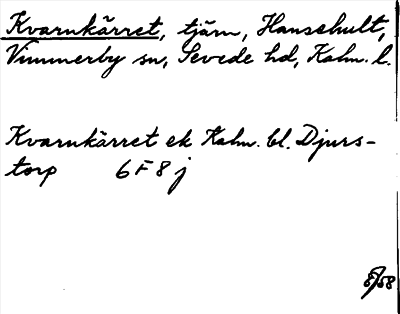 Kvarnkärret, tjärn, Hanschult,
Vimmerby sn, Sevede hd, Kalm. l.
Kvarnkärret ek Kalm. bl. Djurs-
torp 6 F 8 j